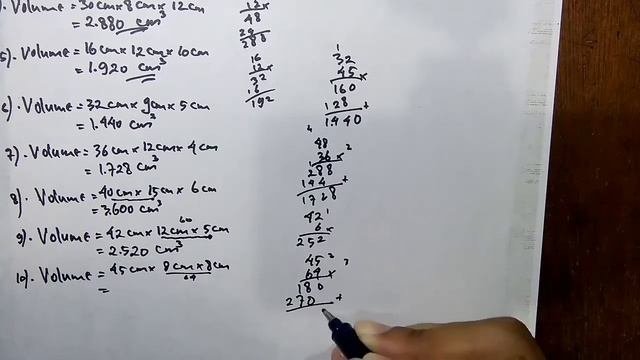 ). Volume = 30cm x 8cm x 12cm
= 2.880 cm³
5). Volume = 16cm x 12cm x 10cm
= 1.920 cm³
6). Volume = 32cm x 9cm x 5cm
= 1.440 cm³
7). Volume = 36cm x 12cm x 4cm
= 1.728 cm³
8). Volume = 40cm x 15cm x 6cm
= 3.600 cm³
60
9). Volume = 42cm x 12cm x 5cm
= 2.520 cm³
10). Volume = 45cm x 8cm x 8cm
64
=
12 x
48
288
16
12 x
32
16
192
1
32
45 x
160
128 +
1440
4
48
36 x 2
288
144 +
1728
42 1
6 x
252
45 2
64 x 3
180
270 +